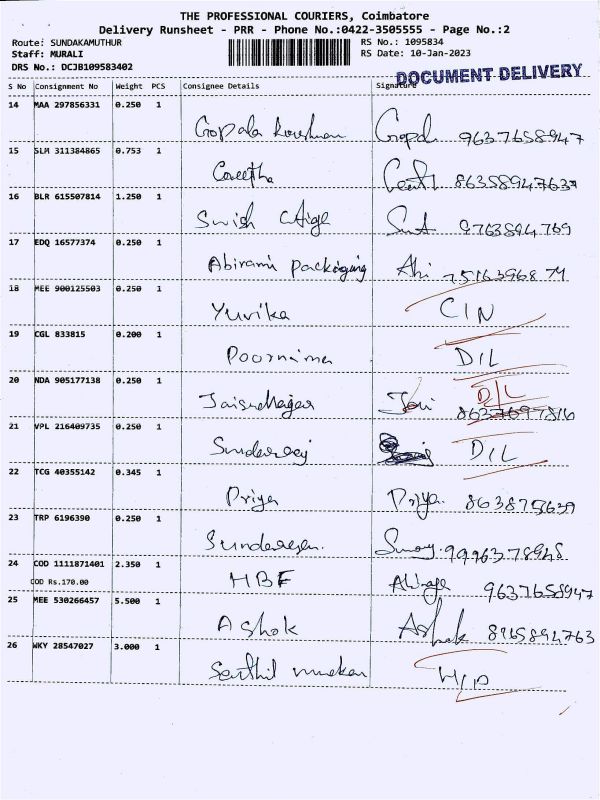 THE PROFESSIONAL COURIERS, Coimbatore
Delivery Runsheet - PRR - Phone No.:0422-3505555 - Page No.:2
Route: SUNDAKAMUTHUR RS No.: 1095834
Staff: MURALI RS Date: 10-Jan-2023
DRS No.: DCJB109583402 DOCUMENT DELIVERY
S No Consignment No Weight PCS Consignee Details Signature
14 MAA 297856331 0.250 1
Gopala Krishnan 9637658947
15 SLM 311384865 0.753 1
86358947637
16 BLR 615507814 1.250 1
Swish 9763894769
17 EDQ 16577374 0.250 1
Abirami Packaging Abi
18 MEE 900125503 0.250 1
Yuvika CIN
19 CGL 833815 0.200 1
Poornima DIL
20 NDA 905177138 0.250 1
D/L
21 VPL 216409735 0.250 1
Sundaraj DIL
22 TCG 40355142 0.345 1
Priya Priya
23 TRP 6196390 0.250 1
Sundaresan.
24 COD 1111871401 2.350 1
COD Rs.170.00 HBF 9637658947
25 MEE 530266457 5.500 1
Ashok Ashok 8965894763
26 WKY 28547027 3.000 1
Senthil H/D